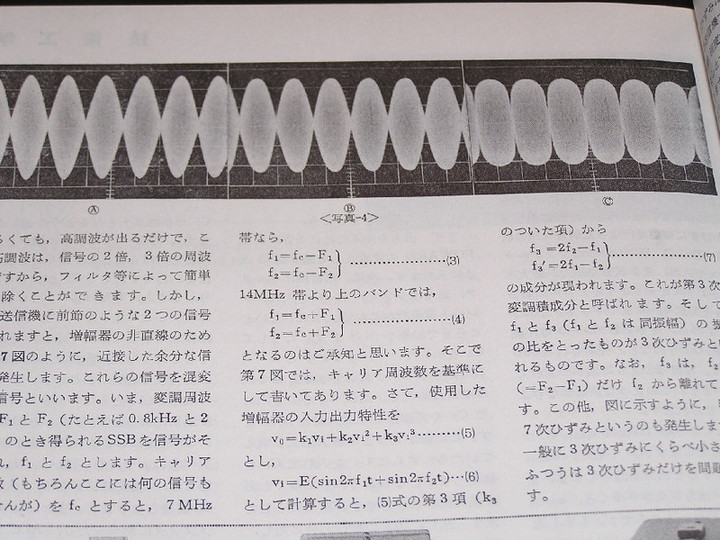 Ⓐ
Ⓑ
Ⓒ
<写真-4>
るくても，高調波が出るだけで，こ
高調波は，信号の2倍，3倍の周波
ですから，フィルタ等によって簡単
除くことができます。しかし，
送信機に前節のような2つの信号
れますと，増幅器の非直線のため
7図のように，近接した余分な信
発生します。これらの信号を混変
信号といいます。いま，変調周波
F₁とF₂（たとえば0.8kHzと2
のとき得られるSSBを信号がそ
れ，f₁とf₂とします。キャリア
数（もちろんここには何の信号も
せんが）をfcとすると，7MHz
帯なら，
f₁=fc−F₁
f₂=fc−F₂ }………………(3)
14MHz帯より上のバンドでは，
f₁=fc+F₁
f₂=fc+F₂ }………………(4)
となるのはご承知と思います。そこで
第7図では，キャリア周波数を基準に
して書いてあります。さて，使用した
増幅器の入力出力特性を
v₀=k₁v₁+k₂v₁²+k₃v₁³………(5)
とし，
v₁=E(sin2πf₁t+sin2πf₂t)…(6)
として計算すると，(5)式の第3項（k₃
のついた項）から
f₃=2f₂−f₁
f₃′=2f₁−f₂ }………………(7)
の成分が現われます。これが第3次
変調積成分と呼ばれます。そして
f₁とf₃（f₁とf₂は同振幅）の
の比をとったものが3次ひずみと
れるものです。なお，f₃は，f₂
(=F₂−F₁)だけf₂から離れて
す。この他，図に示すように，
7次ひずみというのも発生しま
一般に3次ひずみにくらべ小さ
ふつうは3次ひずみだけを問題
す。